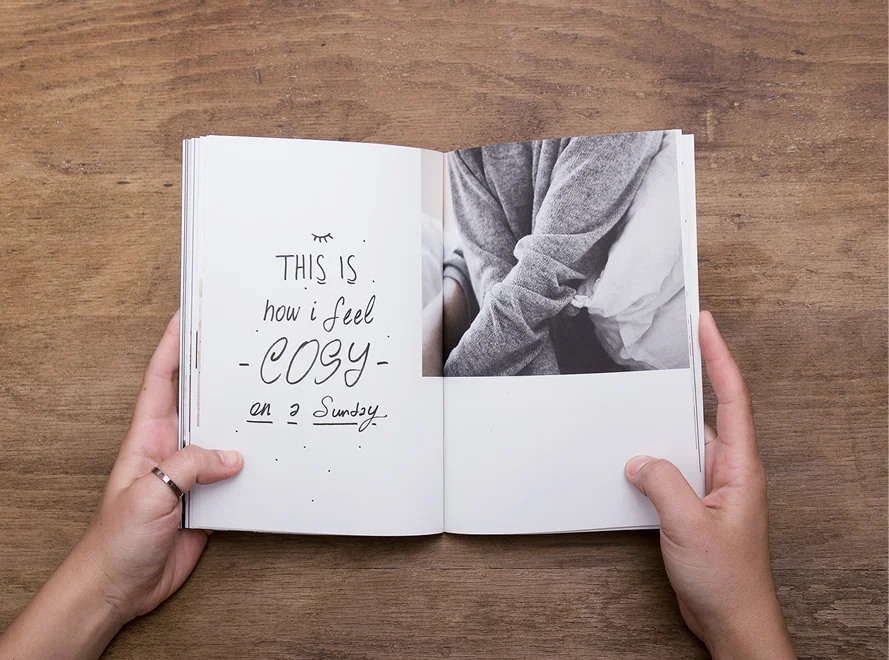 THIS IS
how i feel
-COSY-
on a Sunday